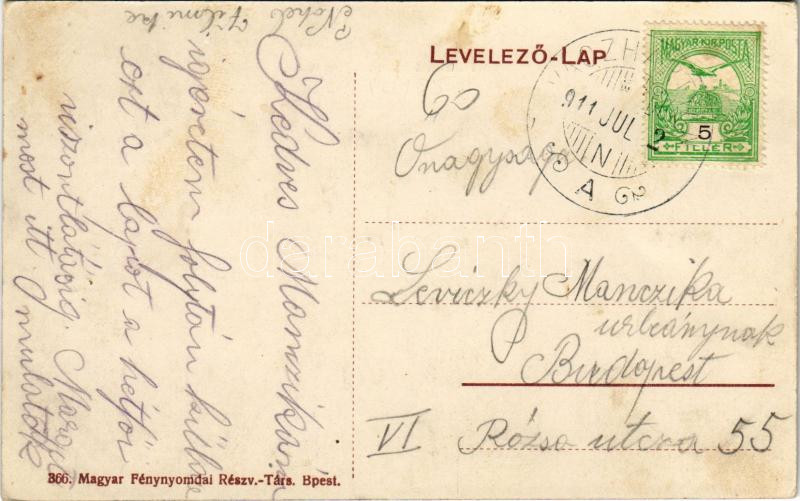 LEVELEZŐ-LAP
MAGYAR KIR. POSTA
5
FILLÉR
911 JUL 2
N
A
Őnagysága
Leviczky Manczika
urleánynak
Budapest
VI Rózsa utcza 55
Kedves Manczikám
igéretem folytán küldöm
ezt a lapot a hétfői
viszontlátásig. Margit
most itt mulatok
366. Magyar Fénynyomdai Részv.-Társ. Bpest.
darabanth